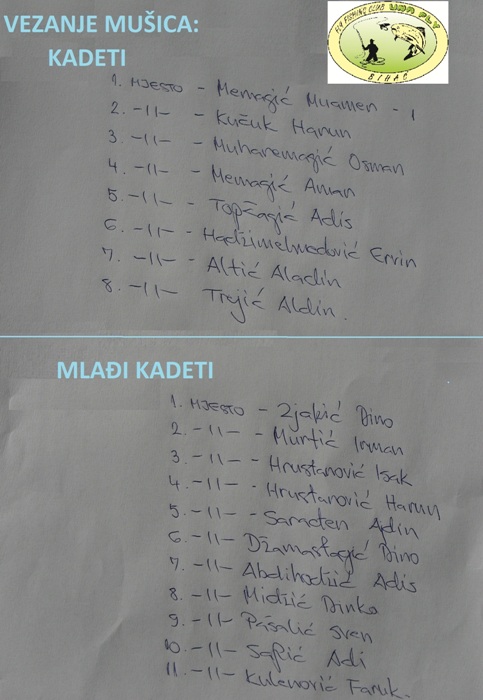 VEZANJE MUŠICA:
KADETI
FLY FISHING CLUB UNA FLY
BIHAĆ
1. MJESTO - Memagić Muamen - 1
2. -11- - Kučuk Harun
3. -11- - Muharemagić Osman
4. -11- - Memagić Aman
5. -11- - Topčagić Adis
6. -11- - Hadžimehmedović Ervin
7. -11- - Altić Aladin
8. -11- Trejić Aldin.
MLAĐI KADETI
1. MJESTO - Zjakić Dino
2. -11- - Murtić Irman
3. -11- - Hrustanović Isak
4. -11- - Hrustanović Harun
5. -11- - Adin
6. -11- Džamastagić Dino
7. -11- Abdihodžić Adis
8. -11- Midžić Dinko
9. -11- Pašalić Sven
10. -11- Safić Adi
11. -11- Kulenović Faruk.